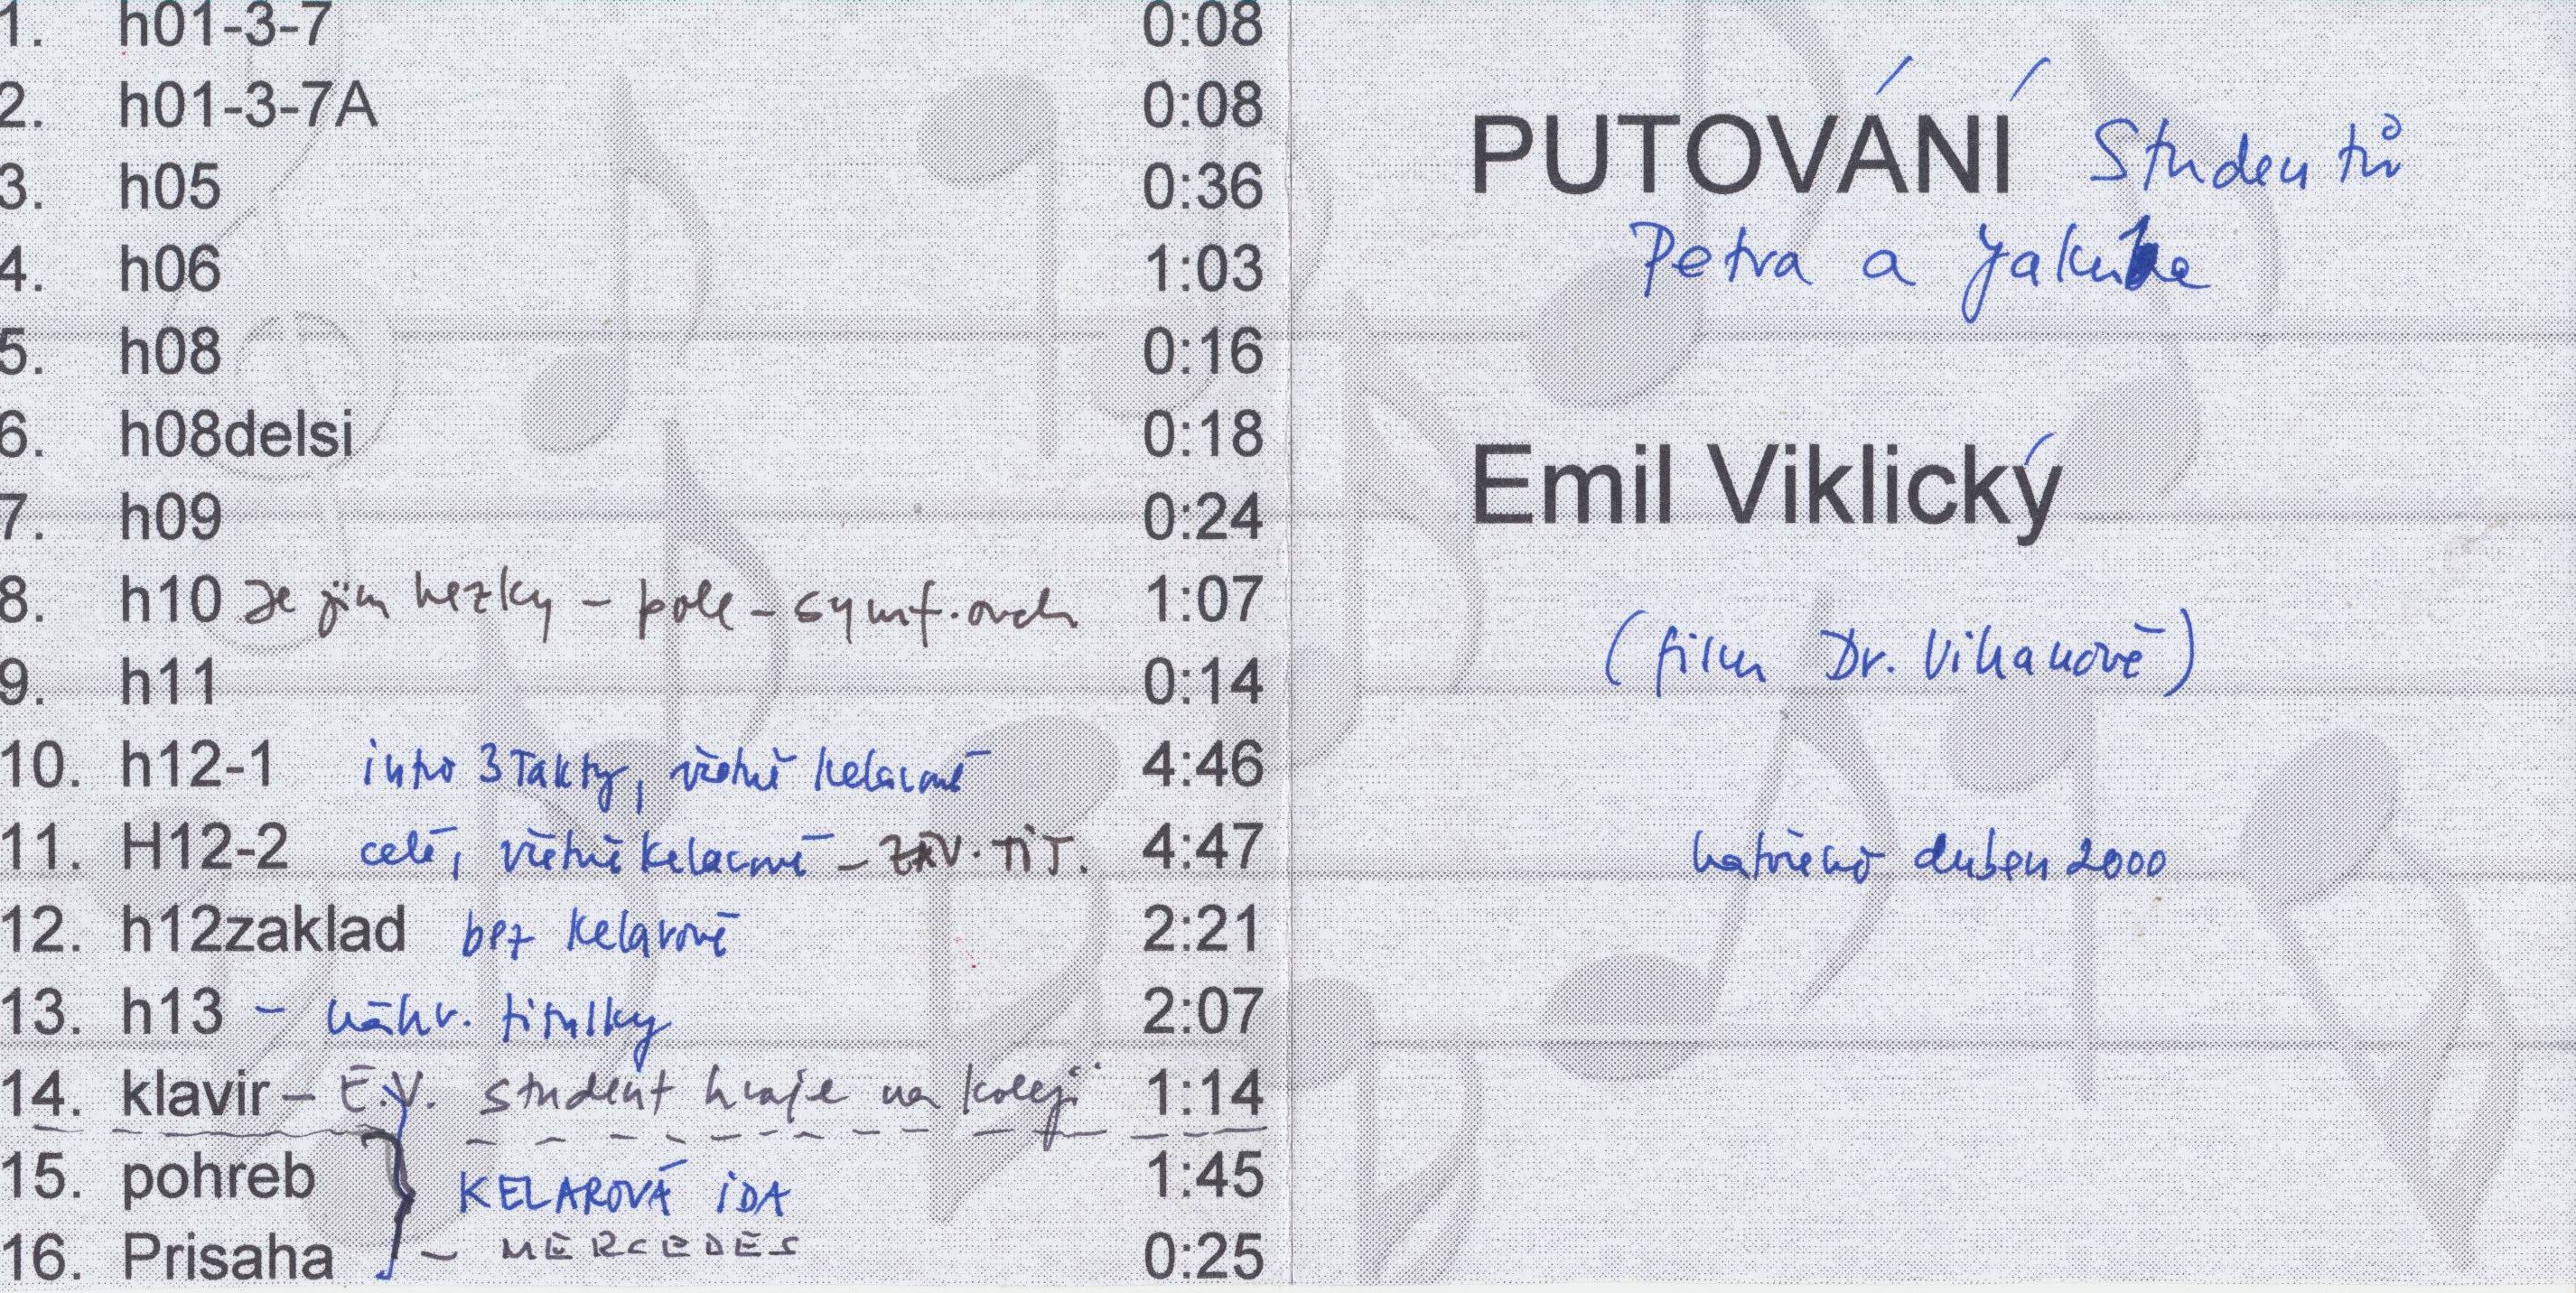 1. h01-3-7 0:08
2. h01-3-7A 0:08
3. h05 0:36
4. h06 1:03
5. h08 0:16
6. h08delsi 0:18
7. h09 0:24
8. h10 Je jim hezky - pole - symf. orch 1:07
9. h11 0:14
10. h12-1 intro 3 Takty, včetně Kelarové 4:46
11. H12-2 celé, včetně Kelarové - ZÁV. TIT. 4:47
12. h12zaklad bez Kelarové 2:21
13. h13 - náhr. titulky 2:07
14. klavir - E.V. student hraje na koleji 1:14
15. pohreb KELAROVÁ IDA 1:45
16. Prisaha - MERCEDES 0:25
PUTOVÁNÍ Studentů
Petra a Jakuba
Emil Viklický
(film Dr. Vihanové)
natočeno duben 2000